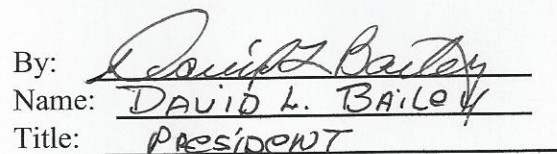 By: David L Bailey
Name: DAVID L. BAILEY
Title: PRESIDENT